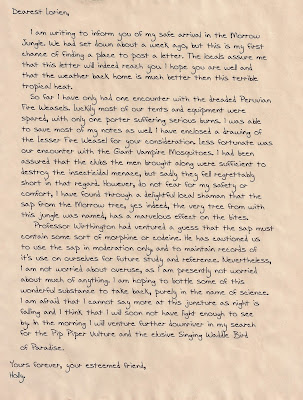 Dearest Lorien,
I am writing to inform you of my safe arrival in the Morrow
Jungle. We had set down about a week ago, but this is my first
chance of finding a place to post a letter. The locals assure me
that this letter will indeed reach you. I hope you are well and
that the weather back home is much better then this terrible
tropical heat.
So far I have only had one encounter with the dreaded Peruvian
Fire Weasels. Luckily most of our tents and equipment were
spared, with only one porter suffering serious burns. I was able
to save most of my notes as well. I have enclosed a drawing of
the lesser Fire Weasel for your consideration. Less fortunate was
our encounter with the Giant Vampire Mosquitoes. I had been
assured that the clubs the men brought along were sufficient to
destroy the insectoidal menace, but sadly they fell regrettably
short in that regard. However, do not fear for my safety or
comfort, I have found through a delightful local shaman that the
sap from the Morrow tree, yes indeed, the very tree from with
this jungle was named, has a marvelous effect on the bites.
Professor Worthington had ventured a guess that the sap must
contain some sort of morphine or codeine. He has cautioned us
to use the sap in moderation only, and to maintain records of
it's use on ourselves for future study and reference. Nevertheless,
I am not worried about overuse, as I am presently not worried
about much of anything. I am hoping to bottle some of this
wonderful substance to take back, purely in the name of science.
I am afraid that I cannot say more at this juncture as night is
falling and I think that I will soon not have light enough to see
by. In the morning I will venture further downriver in my search
for the Pip Piper Vulture and the elusive Singing Waddle Bird
of Paradise.
Yours forever, your esteemed friend,
Holly.